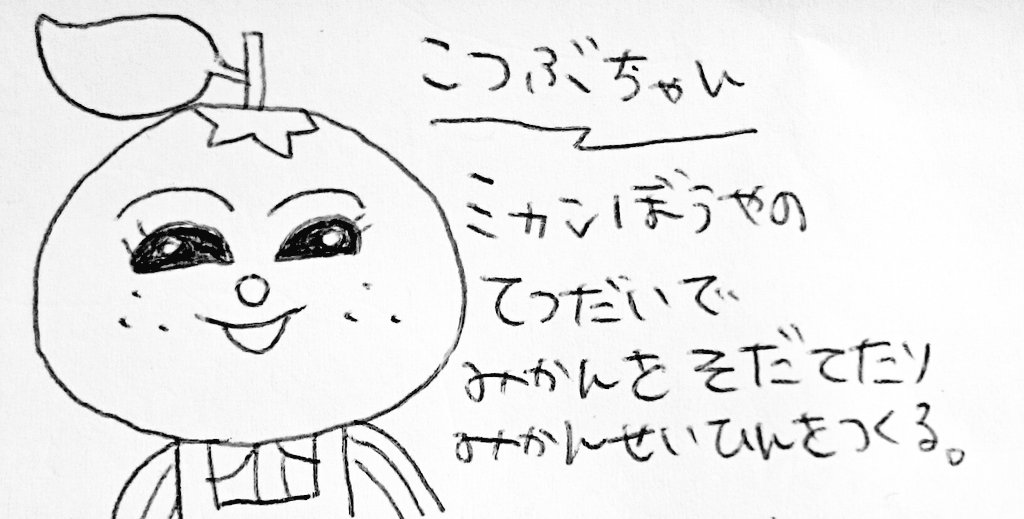 こつぶちゃん
ミカンぼうやの
てつだいで
みかんを そだてたり
みかんせいひんをつくる。